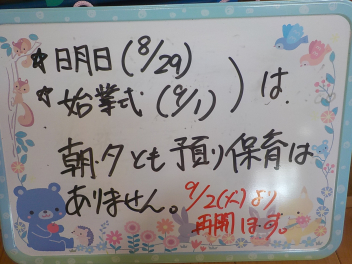 ☆明日(8/29)
☆始業式(9/1)
は
朝夕とも預り保育は
ありません。
9/2(火)より
再開します。